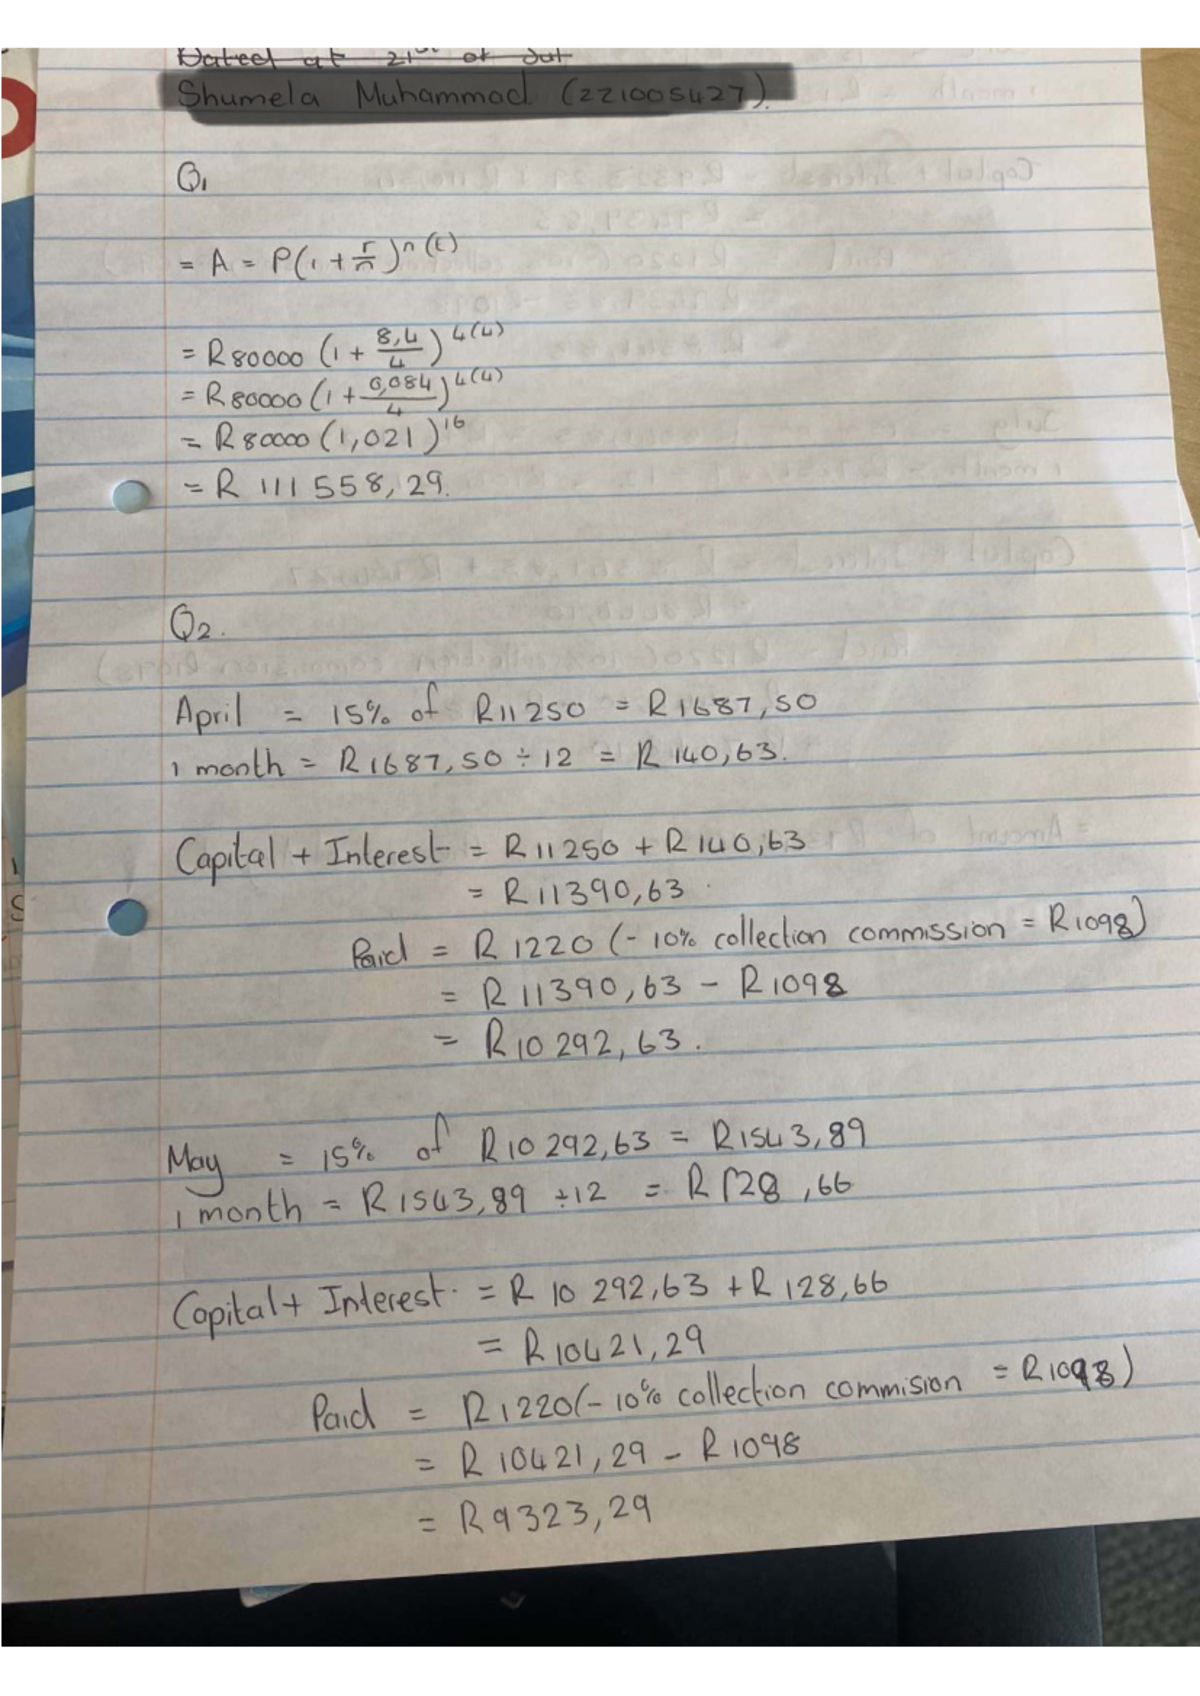 Dated at 21st of Jul
Shumela Muhammad (221005427).
Q1
= A = P(1 + r/n)^n(t)
= R80000 (1 + 8,4/4)^4(4)
= R80000 (1 + 0,084/4)^4(4)
= R80000 (1,021)^16
= R 111 558,29.
Q2.
April = 15% of R11250 = R1687,50
1 month = R1687,50 ÷ 12 = R 140,63.
Capital + Interest = R11250 + R140,63
= R11390,63
Paid = R1220 (- 10% collection commission = R1098)
= R11390,63 - R1098
= R10 292,63.
May = 15% of R10 292,63 = R1543,89
1 month = R1543,89 ÷12 = R128,66
Capital + Interest = R 10 292,63 + R128,66
= R10421,29
Paid = R1220(- 10% collection commision = R1098)
= R10421,29 - R1098
= R9323,29